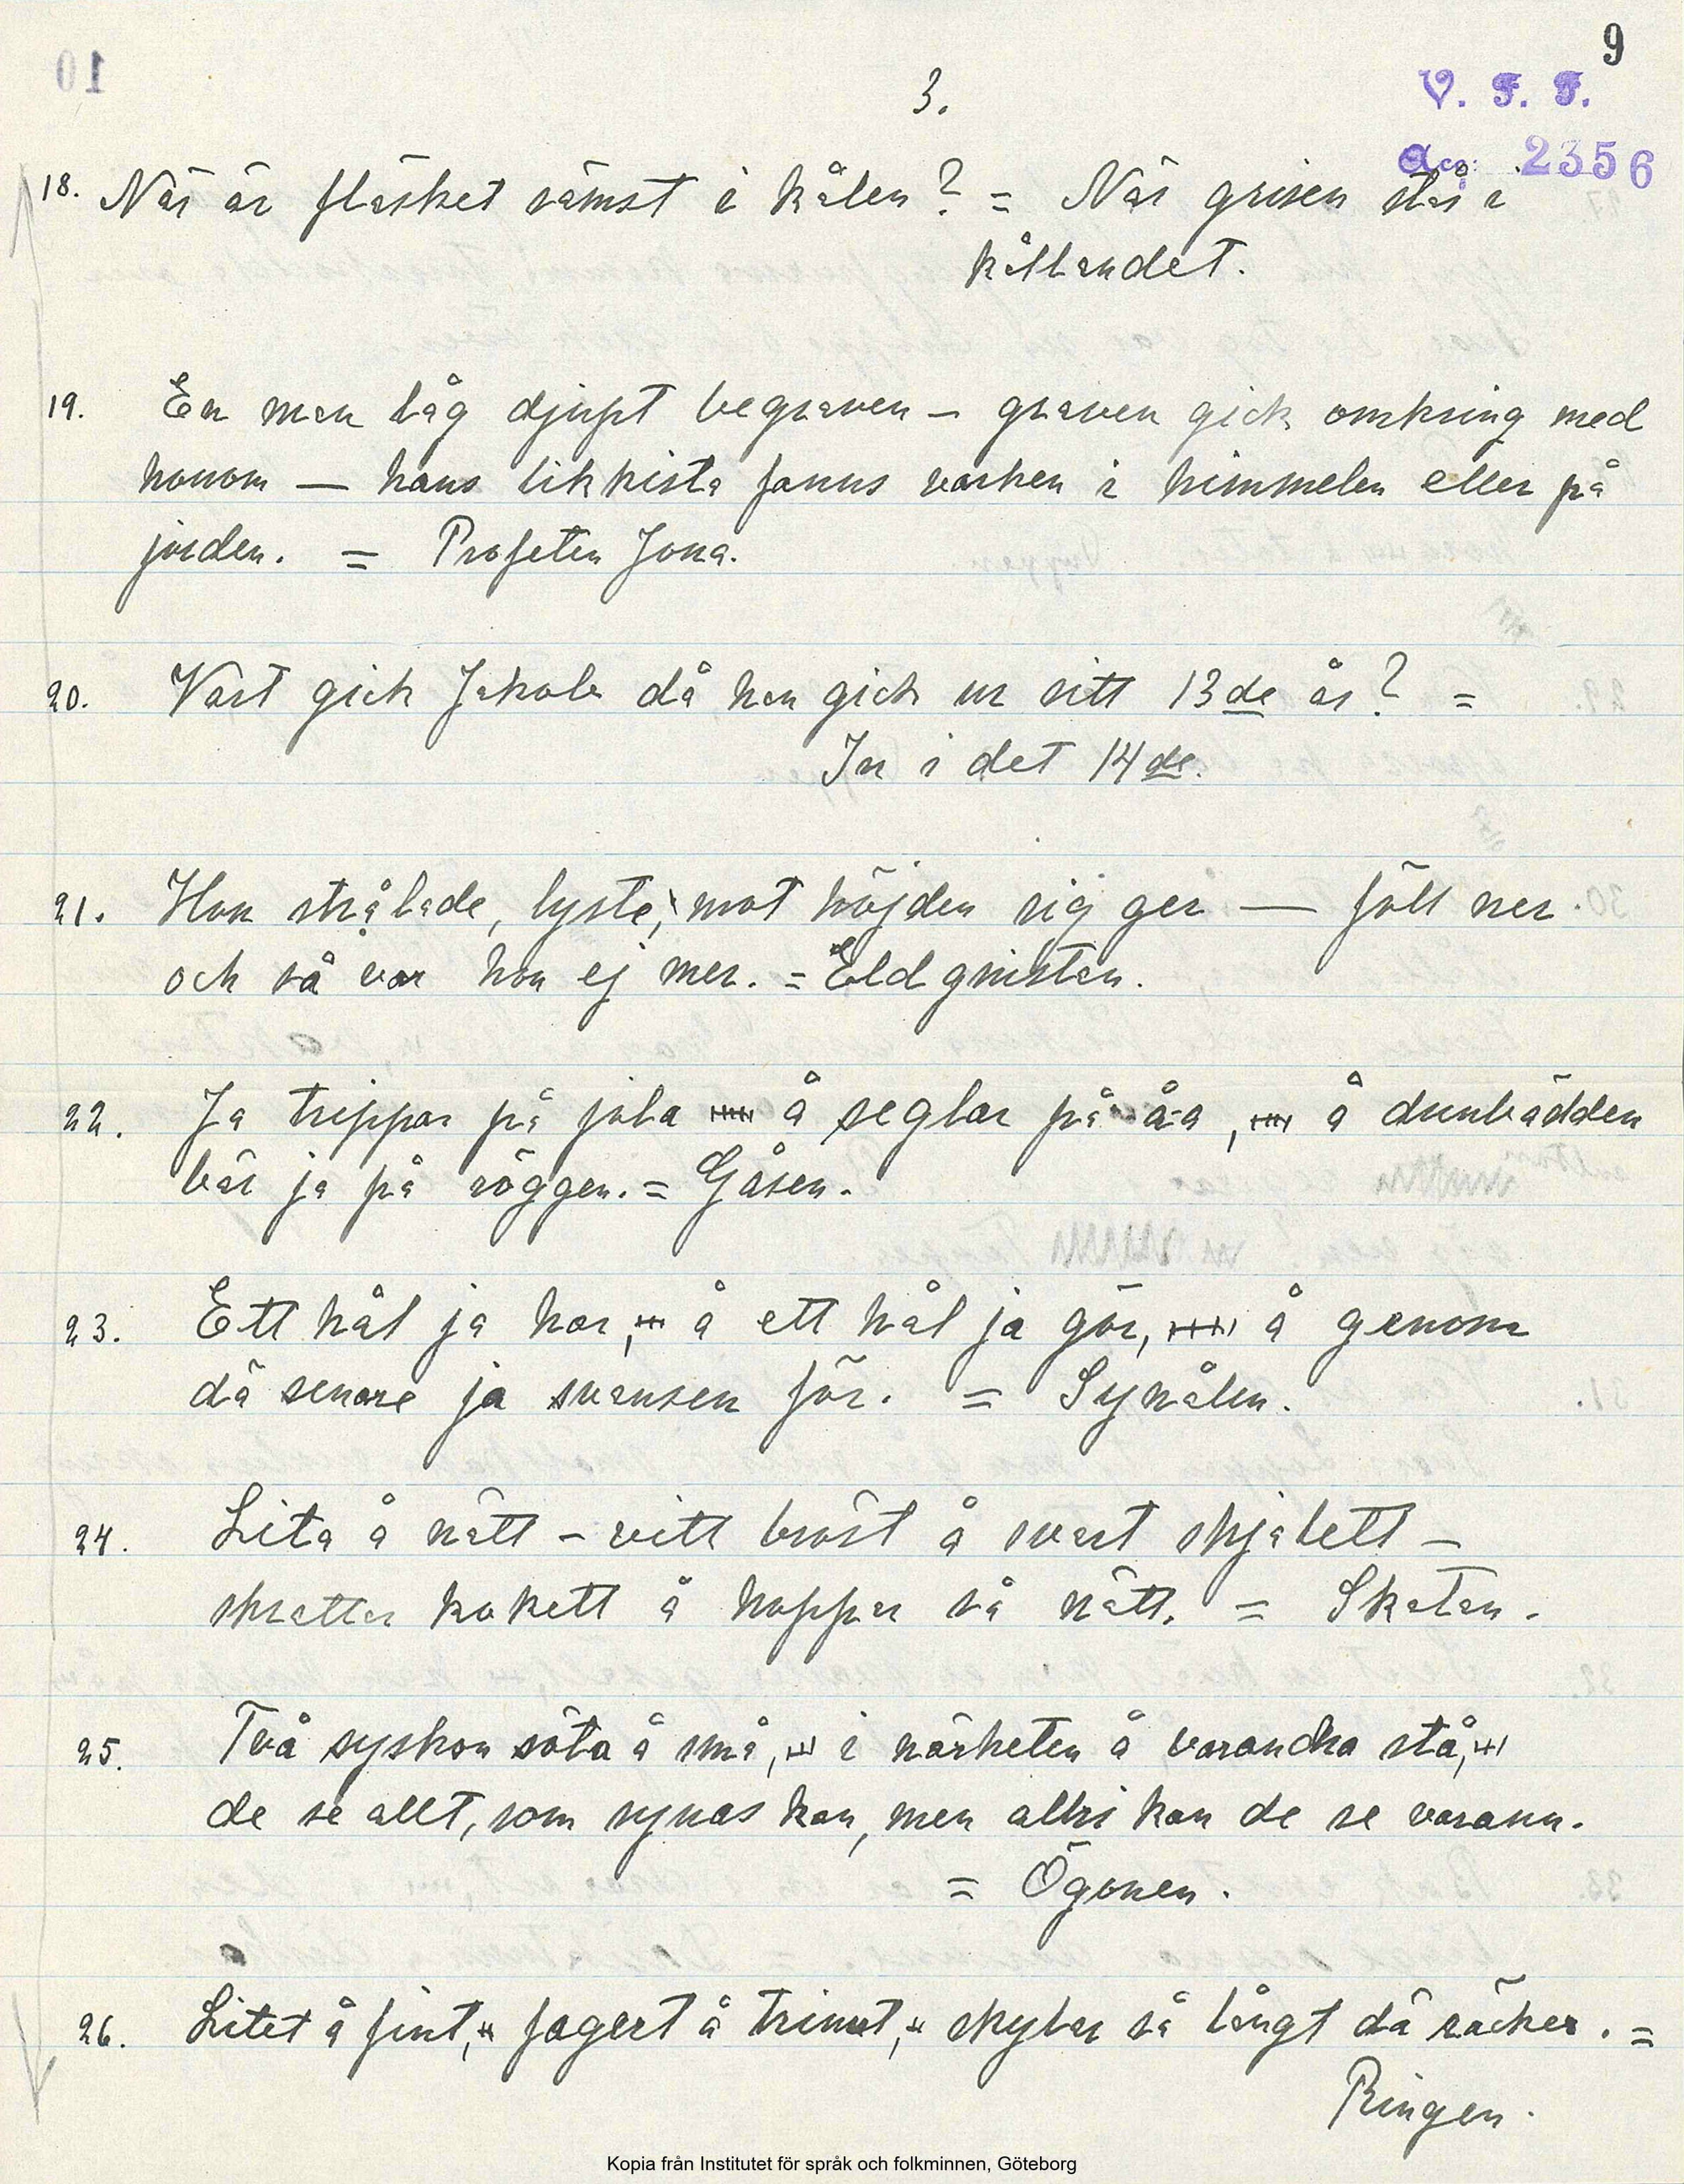 9
3.
V. F. F.
Acc: 2356
18. När är fläsket sämst i kålen? = När grisen står i
kållandet.
19. En man låg djupt begraven — graven gick omkring med
honom — hans likkista fanns varken i himmelen eller på
jorden. = Profeten Jona.
20. Vart gick Jakob då han gick ur sitt 13de år? =
In i det 14de.
21. Hon strålade, lyste, mot höjden sig ger — föll ner
och så var hon ej mer. = Eldgnistan.
22. Ja trippar på jola å seglar på å-a, å dunbädden
bär ja på röggen. = Gåsen.
23. Ett hål ja har, å ett hål ja gör, å genom
dä senare ja svansen för. = Synålen.
24. Lita å nätt – vitt bröst å svart skjalett –
skrattar kokett å hoppar så nätt. = Skatan.
25. Två syskon söta å små, i närheten å varandra stå,
de se allt, som synas kan, men alri kan de se varann.
= Ögonen.
26. Litet å fint, fagert å trimt, skyler så långt dä räcker. =
Ringen.
Kopia från Institutet för språk och folkminnen, Göteborg